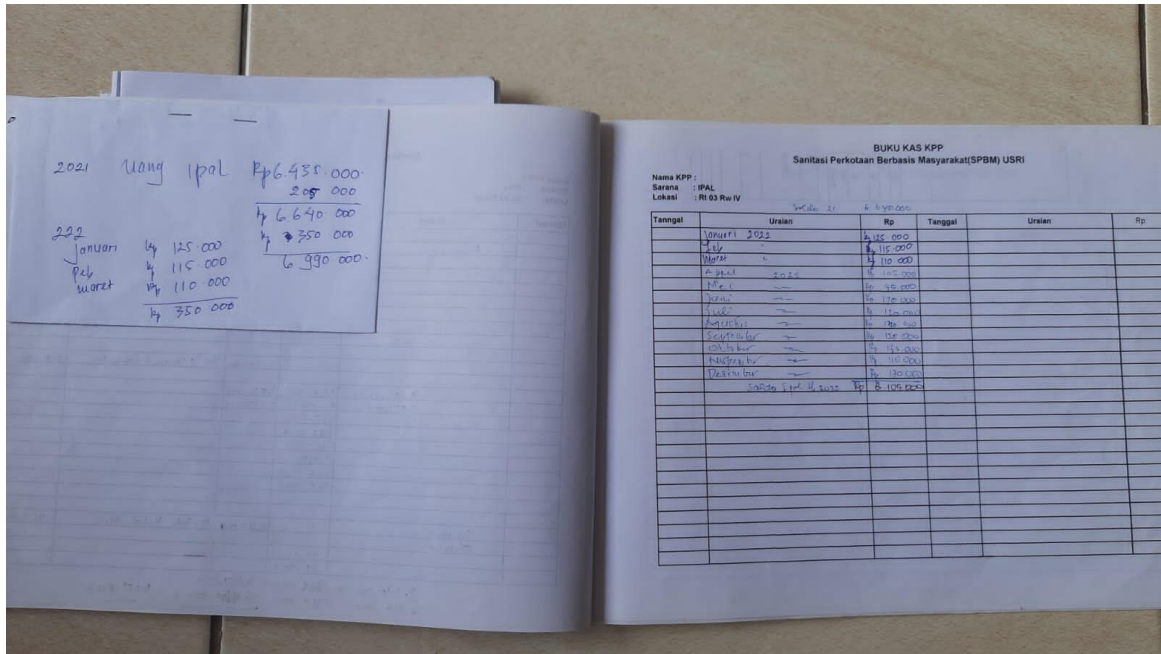 2021 Uang ipal Rp6.435.000.
205 000
Rp 6.640 000
Rp 350 000
6 990 000.
222
Januari Rp 125.000
Peb Rp 115.000
maret Rp 110 000
Rp 350 000
BUKU KAS KPP
Sanitasi Perkotaan Berbasis Masyarakat(SPBM) USRI
Nama KPP :
Sarana : IPAL
Lokasi : Rt 03 Rw IV
Saldo 21 6 640.000
Tanngal Uraian Rp Tanggal Uraian Rp
Januari 2022 Rp 125 000
Feb " Rp 115.000
Maret " Rp 110 000
April 2022 Rp 105 000
Mei Rp 95 000
Juni Rp 120 000
Juli Rp 120 000
Agustus Rp 000
September Rp 120 000
Oktober Rp 000
Rp 110 000
Desember Rp 130 000
2022 Rp 8 105 000